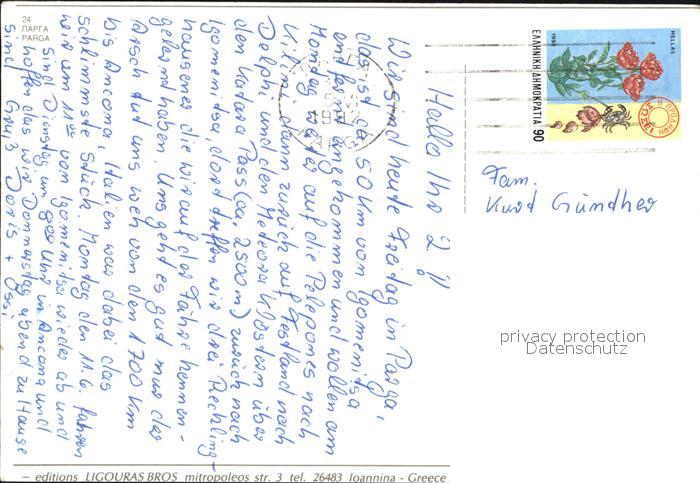 24
ΠΑΡΓΑ
PARGA
Hallo Ihr 2!
Wir sind heute Freitag in Parga,
das ist ca 50 Km vom Igomenitsa
entfernt angekommen und wollen am
Montag weiter auf die Peleponnes nach
dann zurück auf Festland nach
Delphi und den Meteora Klöstern über
den Katara Pass (ca. 2500m) zurück nach
Igomenitsa dort treffen wir drei Reckling-
hausener die wir auf der Fähre kennen-
gelernt haben. Uns geht es gut nur der
Arsch tut uns weh von den 1700 Km
bis Ancona, Italien war dabei das
schlimmste Stück. Montag den 11.6. fahren
wir um 11°° von Igomenitsa wieder ab und
sind Dienstag um Uhr in Ancona und
hoffen das wir Donnerstag abend zu Hause
sind Gruß Doris + Ossi
HELLAS
1992
ΕΛΛΗΝΙΚΗ ΔΗΜΟΚΡΑΤΙΑ 90
Fam.
Kurt Günther
privacy protection
Datenschutz
– editions LIGOURAS BROS mitropoleos str. 3 tel. 26483 Ioannina - Greece